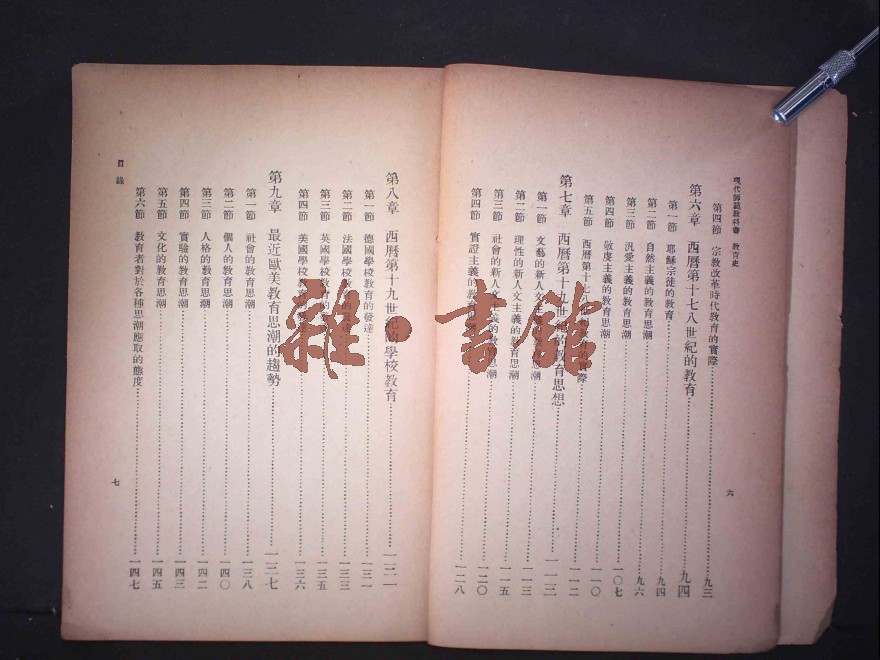 現代師範教科書 教育史
第四節 宗教改革時代教育的實際……九三
第六章 西曆第十七八世紀的教育……九四
第一節 耶穌宗徒的教育……九四
第二節 自然主義的教育思潮……九六
第三節 汎愛主義的教育思潮……一〇七
第四節 敬虔主義的教育思潮……一一〇
第五節 西曆第十七八世紀教育的實際……一一二
第七章 西曆第十九世紀的教育思想……一一二
第一節 文藝的新人文主義的教育思潮……一一三
第二節 理性的新人文主義的教育思潮……一一五
第三節 社會的新人文主義的教育思潮……一二〇
第四節 實證主義的教育思潮……一二八
六
第八章 西曆第十九世紀的學校教育……一三一
第一節 德國學校教育的發達……一三一
第二節 法國學校教育的發達……一三三
第三節 英國學校教育的發達……一三五
第四節 美國學校教育的發達……一三六
第九章 最近歐美教育思潮的趨勢……一三七
第一節 社會的教育思潮……一三八
第二節 個人的教育思潮……一四〇
第三節 人格的教育思潮……一四二
第四節 實驗的教育思潮……一四三
第五節 文化的教育思潮……一四五
第六節 教育者對於各種思潮應取的態度……一四七
目錄
七
雜·書館